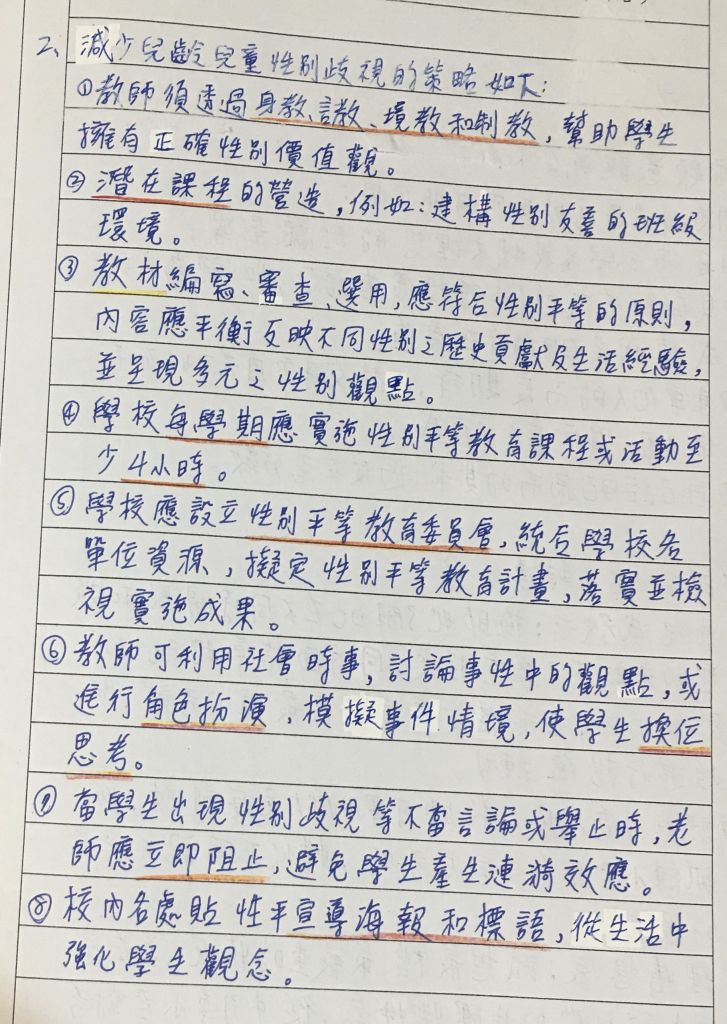 2、減少兒齡兒童性別歧視的策略如下:
①教師須透過身教、言教、境教和制教,幫助學生
擁有正確性別價值觀。
②潛在課程的營造,例如:建構性別友善的班級
環境。
③教材編寫、審查、選用,應符合性別平等的原則,
內容應平衡反映不同性別之歷史貢獻及生活經驗,
並呈現多元之性別觀點。
④學校每學期應實施性別平等教育課程或活動至
少4小時。
⑤學校應設立性別平等教育委員會,統合學校各
單位資源,擬定性別平等教育計畫,落實並檢
視實施成果。
⑥教師可利用社會時事,討論事性中的觀點,或
進行角色扮演,模擬事件情境,使學生換位
思考。
⑦當學生出現性別歧視等不當言論或舉止時,老
師應立即阻止,避免學生產生漣漪效應。
⑧校內各處貼性平宣導海報和標語,從生活中
強化學生觀念。